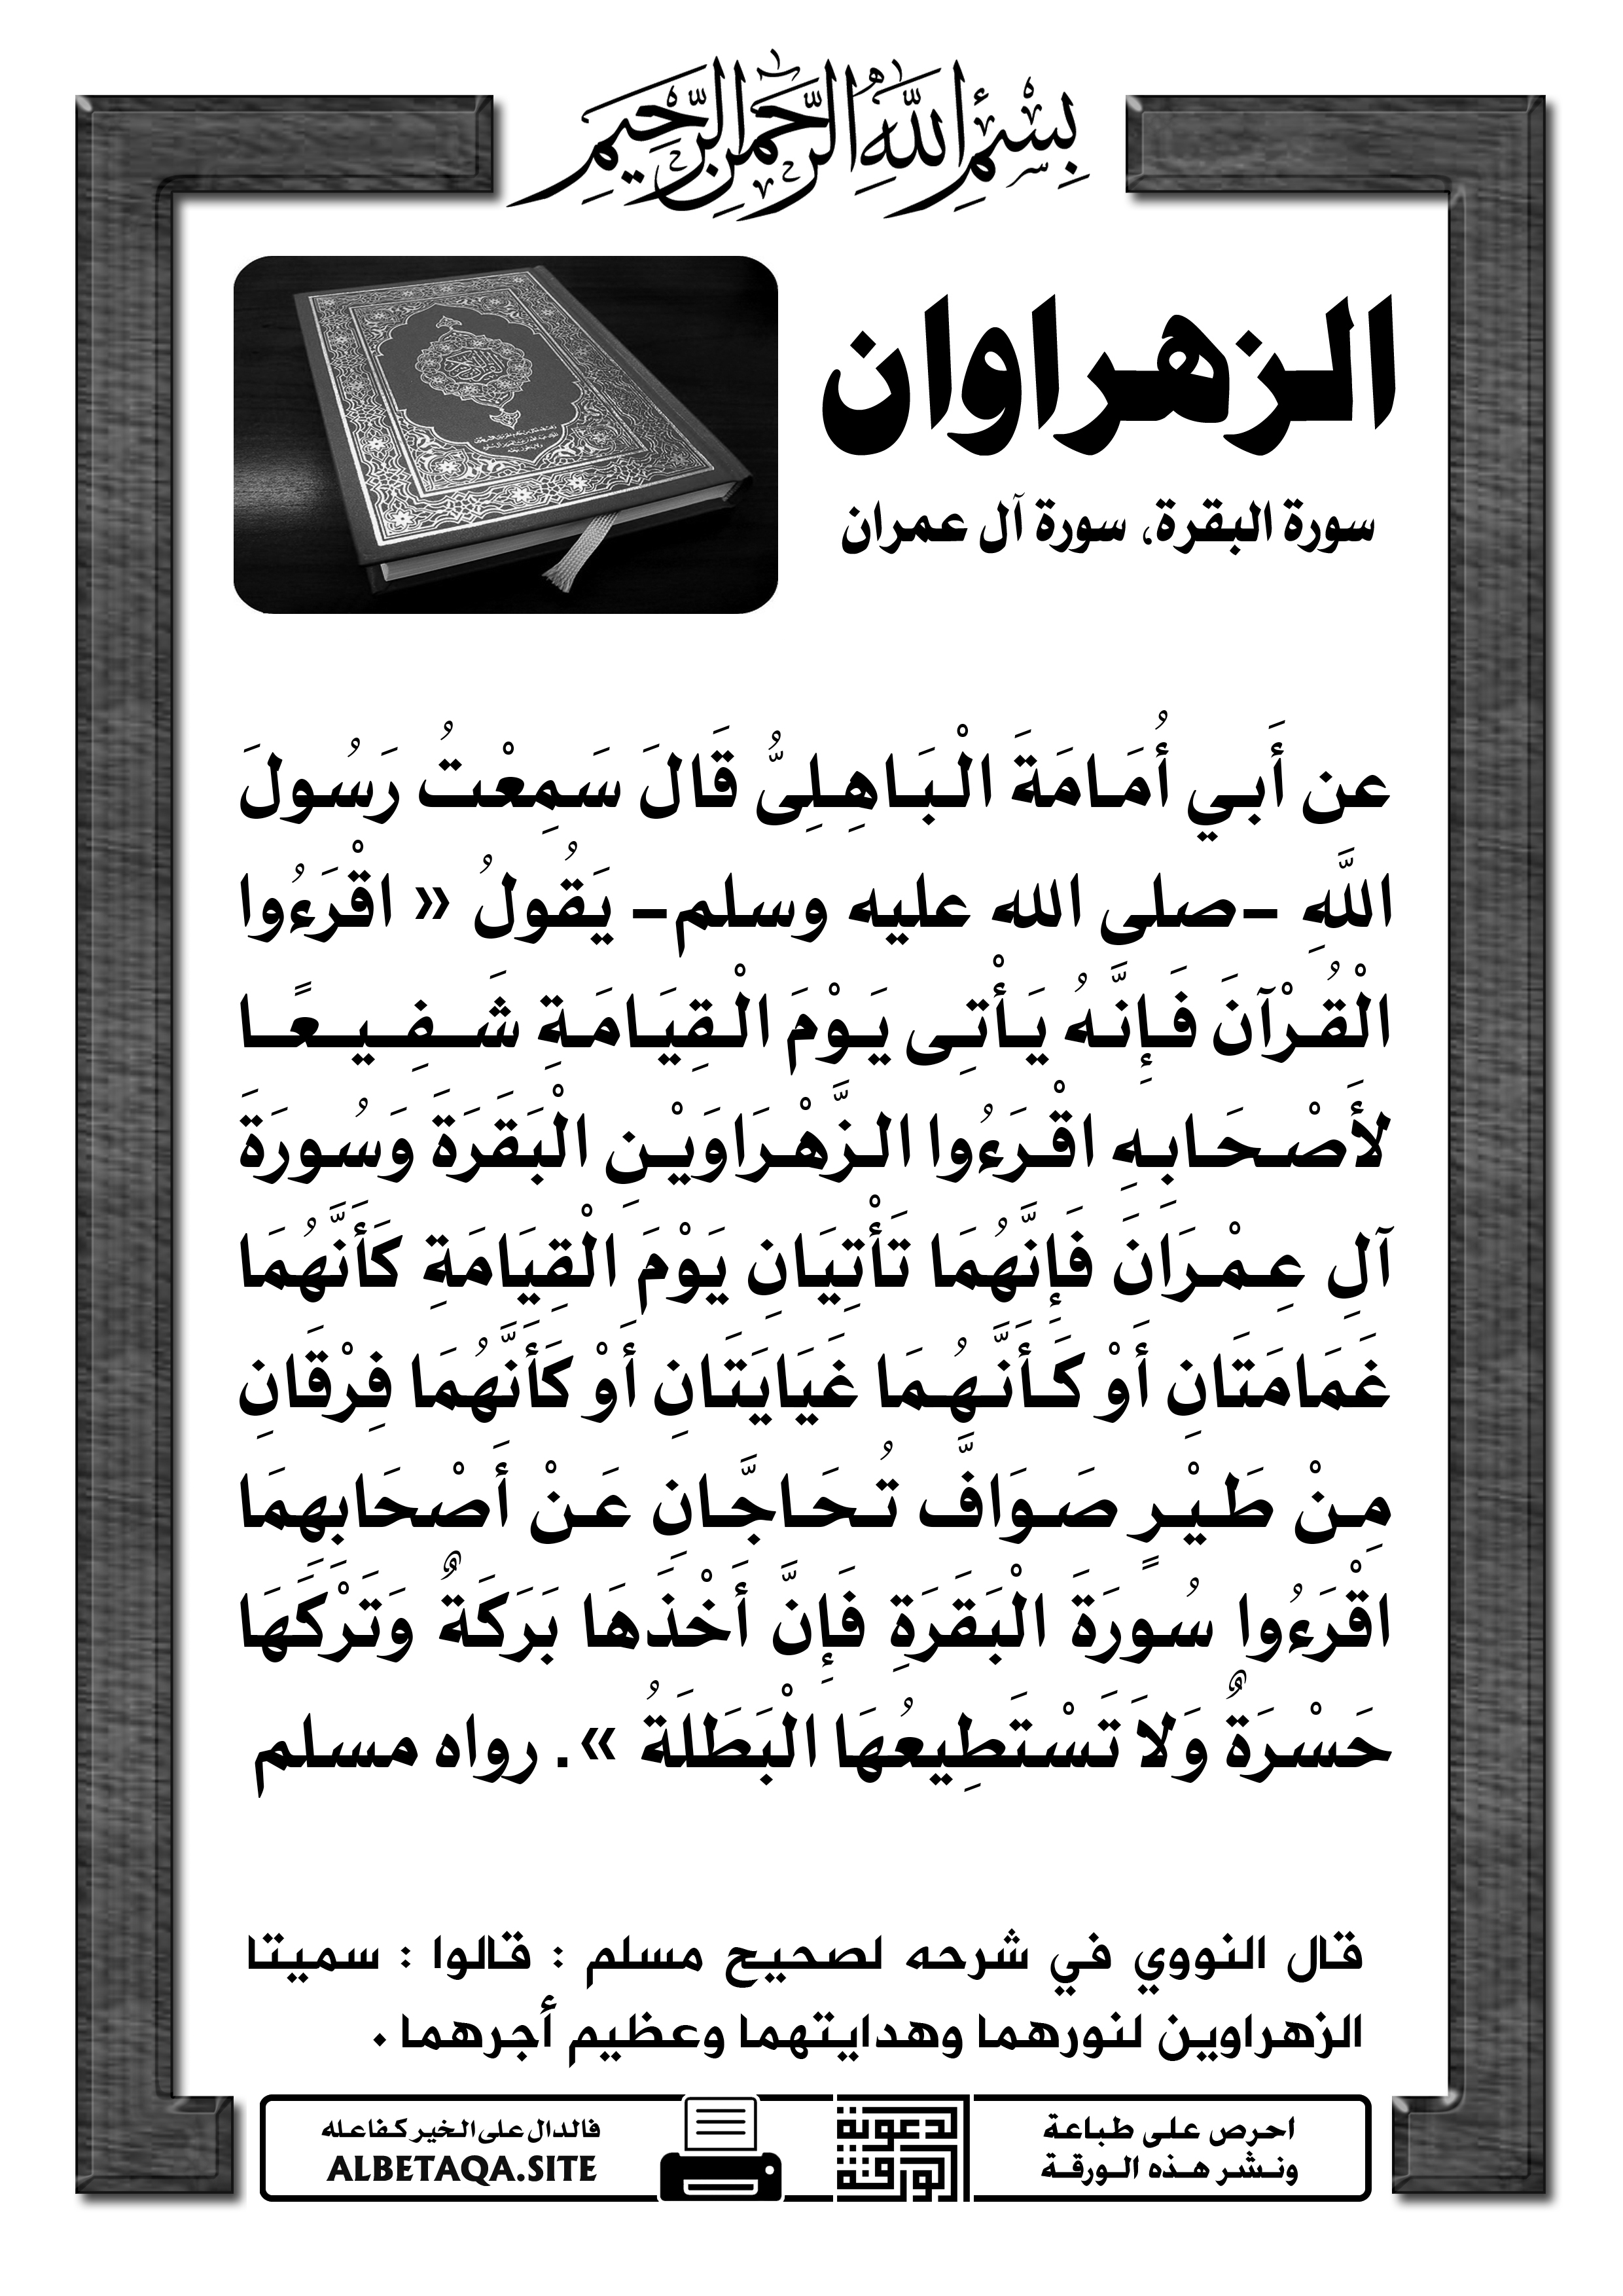 بِسْمِ اللَّهِ الرَّحْمَنِ الرَّحِيمِ
الزهراوان
سورة البقرة، سورة آل عمران
عن أَبي أُمَامَةَ الْبَاهِلِىُّ قَالَ سَمِعْتُ رَسُولَ
اللَّهِ -صلى الله عليه وسلم- يَقُولُ « اقْرَءُوا
الْقُرْآنَ فَإِنَّهُ يَأْتِى يَوْمَ الْقِيَامَةِ شَفِيعًا
لأَصْحَابِهِ اقْرَءُوا الزَّهْرَاوَيْنِ الْبَقَرَةَ وَسُورَةَ
آلِ عِمْرَانَ فَإِنَّهُمَا تَأْتِيَانِ يَوْمَ الْقِيَامَةِ كَأَنَّهُمَا
غَمَامَتَانِ أَوْ كَأَنَّهُمَا غَيَايَتَانِ أَوْ كَأَنَّهُمَا فِرْقَانِ
مِنْ طَيْرٍ صَوَافَّ تُحَاجَّانِ عَنْ أَصْحَابِهِمَا
اقْرَءُوا سُورَةَ الْبَقَرَةِ فَإِنَّ أَخْذَهَا بَرَكَةٌ وَتَرْكَهَا
حَسْرَةٌ وَلاَ تَسْتَطِيعُهَا الْبَطَلَةُ ». رواه مسلم
قال النووي في شرحه لصحيح مسلم : قالوا : سميتا
الزهراوين لنورهما وهدايتهما وعظيم أجرهما .
احرص على طباعة
ونشر هذه الورقة
الدعوية
الورقة
فالدال على الخير كفاعله
ALBETAQA.SITE